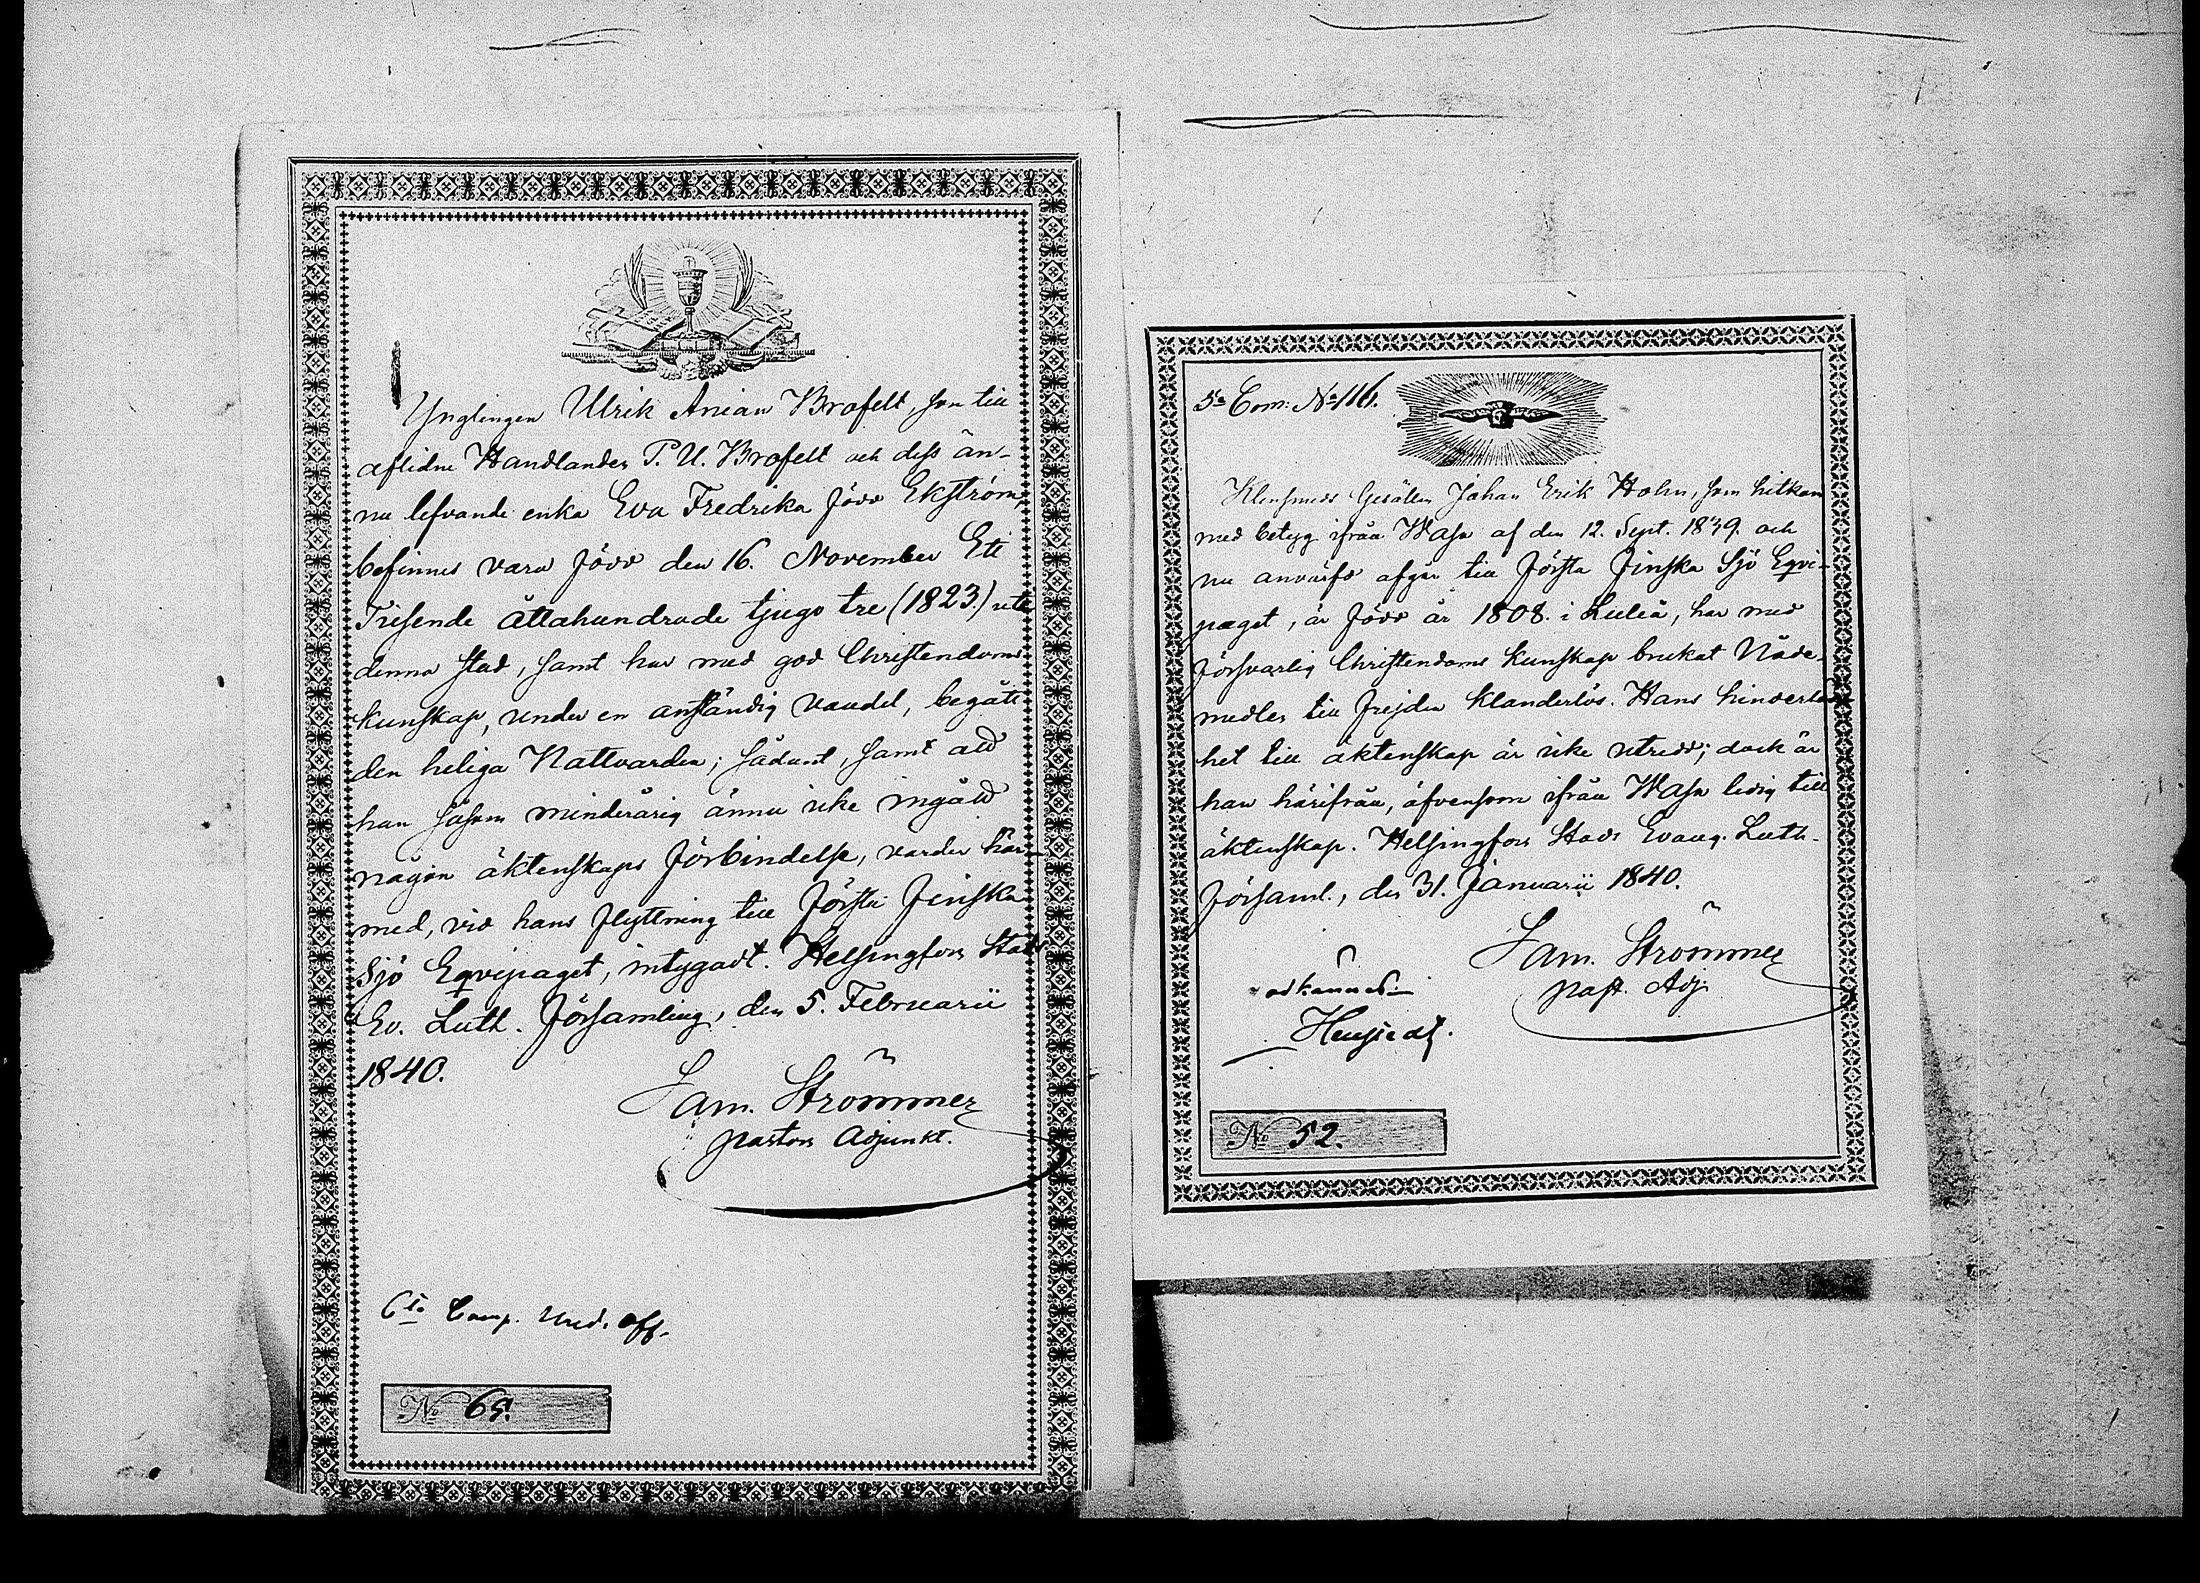 Ynglingen Ulrik Anian Brofelt, son till
aflidne Handlanden P. U. Brofelt och dess än-
nu lefvande enka Eva Fredrika född Ekström,
befinnes vara född den 16. November Ett
Tusende åttahundrade tjugo tre (1823.) uti
denna stad, samt har med god Christendoms
kunskap, under en anständig vandel, begått
den heliga Nattvarden; sådant, samt att
han såsom minderårig ännu icke ingått
någon äktenskaps förbindelse, varder här-
med, vid hans flyttning till Första Finska
Sjö Eqvipaget, intygadt. Helsingfors Stads
Ev. Luth. Församling, den 5. Februarii
1840.
Sam. Strömmer
pastors Adjunkt.
6te Comp. Und. off.
No 65.
5e Com: No 116.
Klensmeds Gesällen Johan Erik Holm, som hitkom
med betyg ifrån Wasa af den 12. Sept. 1839. och
nu anvärfd afgår till Första Finska Sjö Eqvi-
paget, är född år 1808. i Luleå, har med
försvarlig Christendoms kunskap brukat Nåde-
medlen till frejden klanderlös. Hans hinderlös-
het till äktenskap är icke utredd; dock är
han härifrån, äfvensom ifrån Wasa ledig till
äktenskap. Helsingfors Stads Evang. Luth.
Församl., den 31. Januarii 1840.
Sam. Strömmer
past. Adj.
No 52.